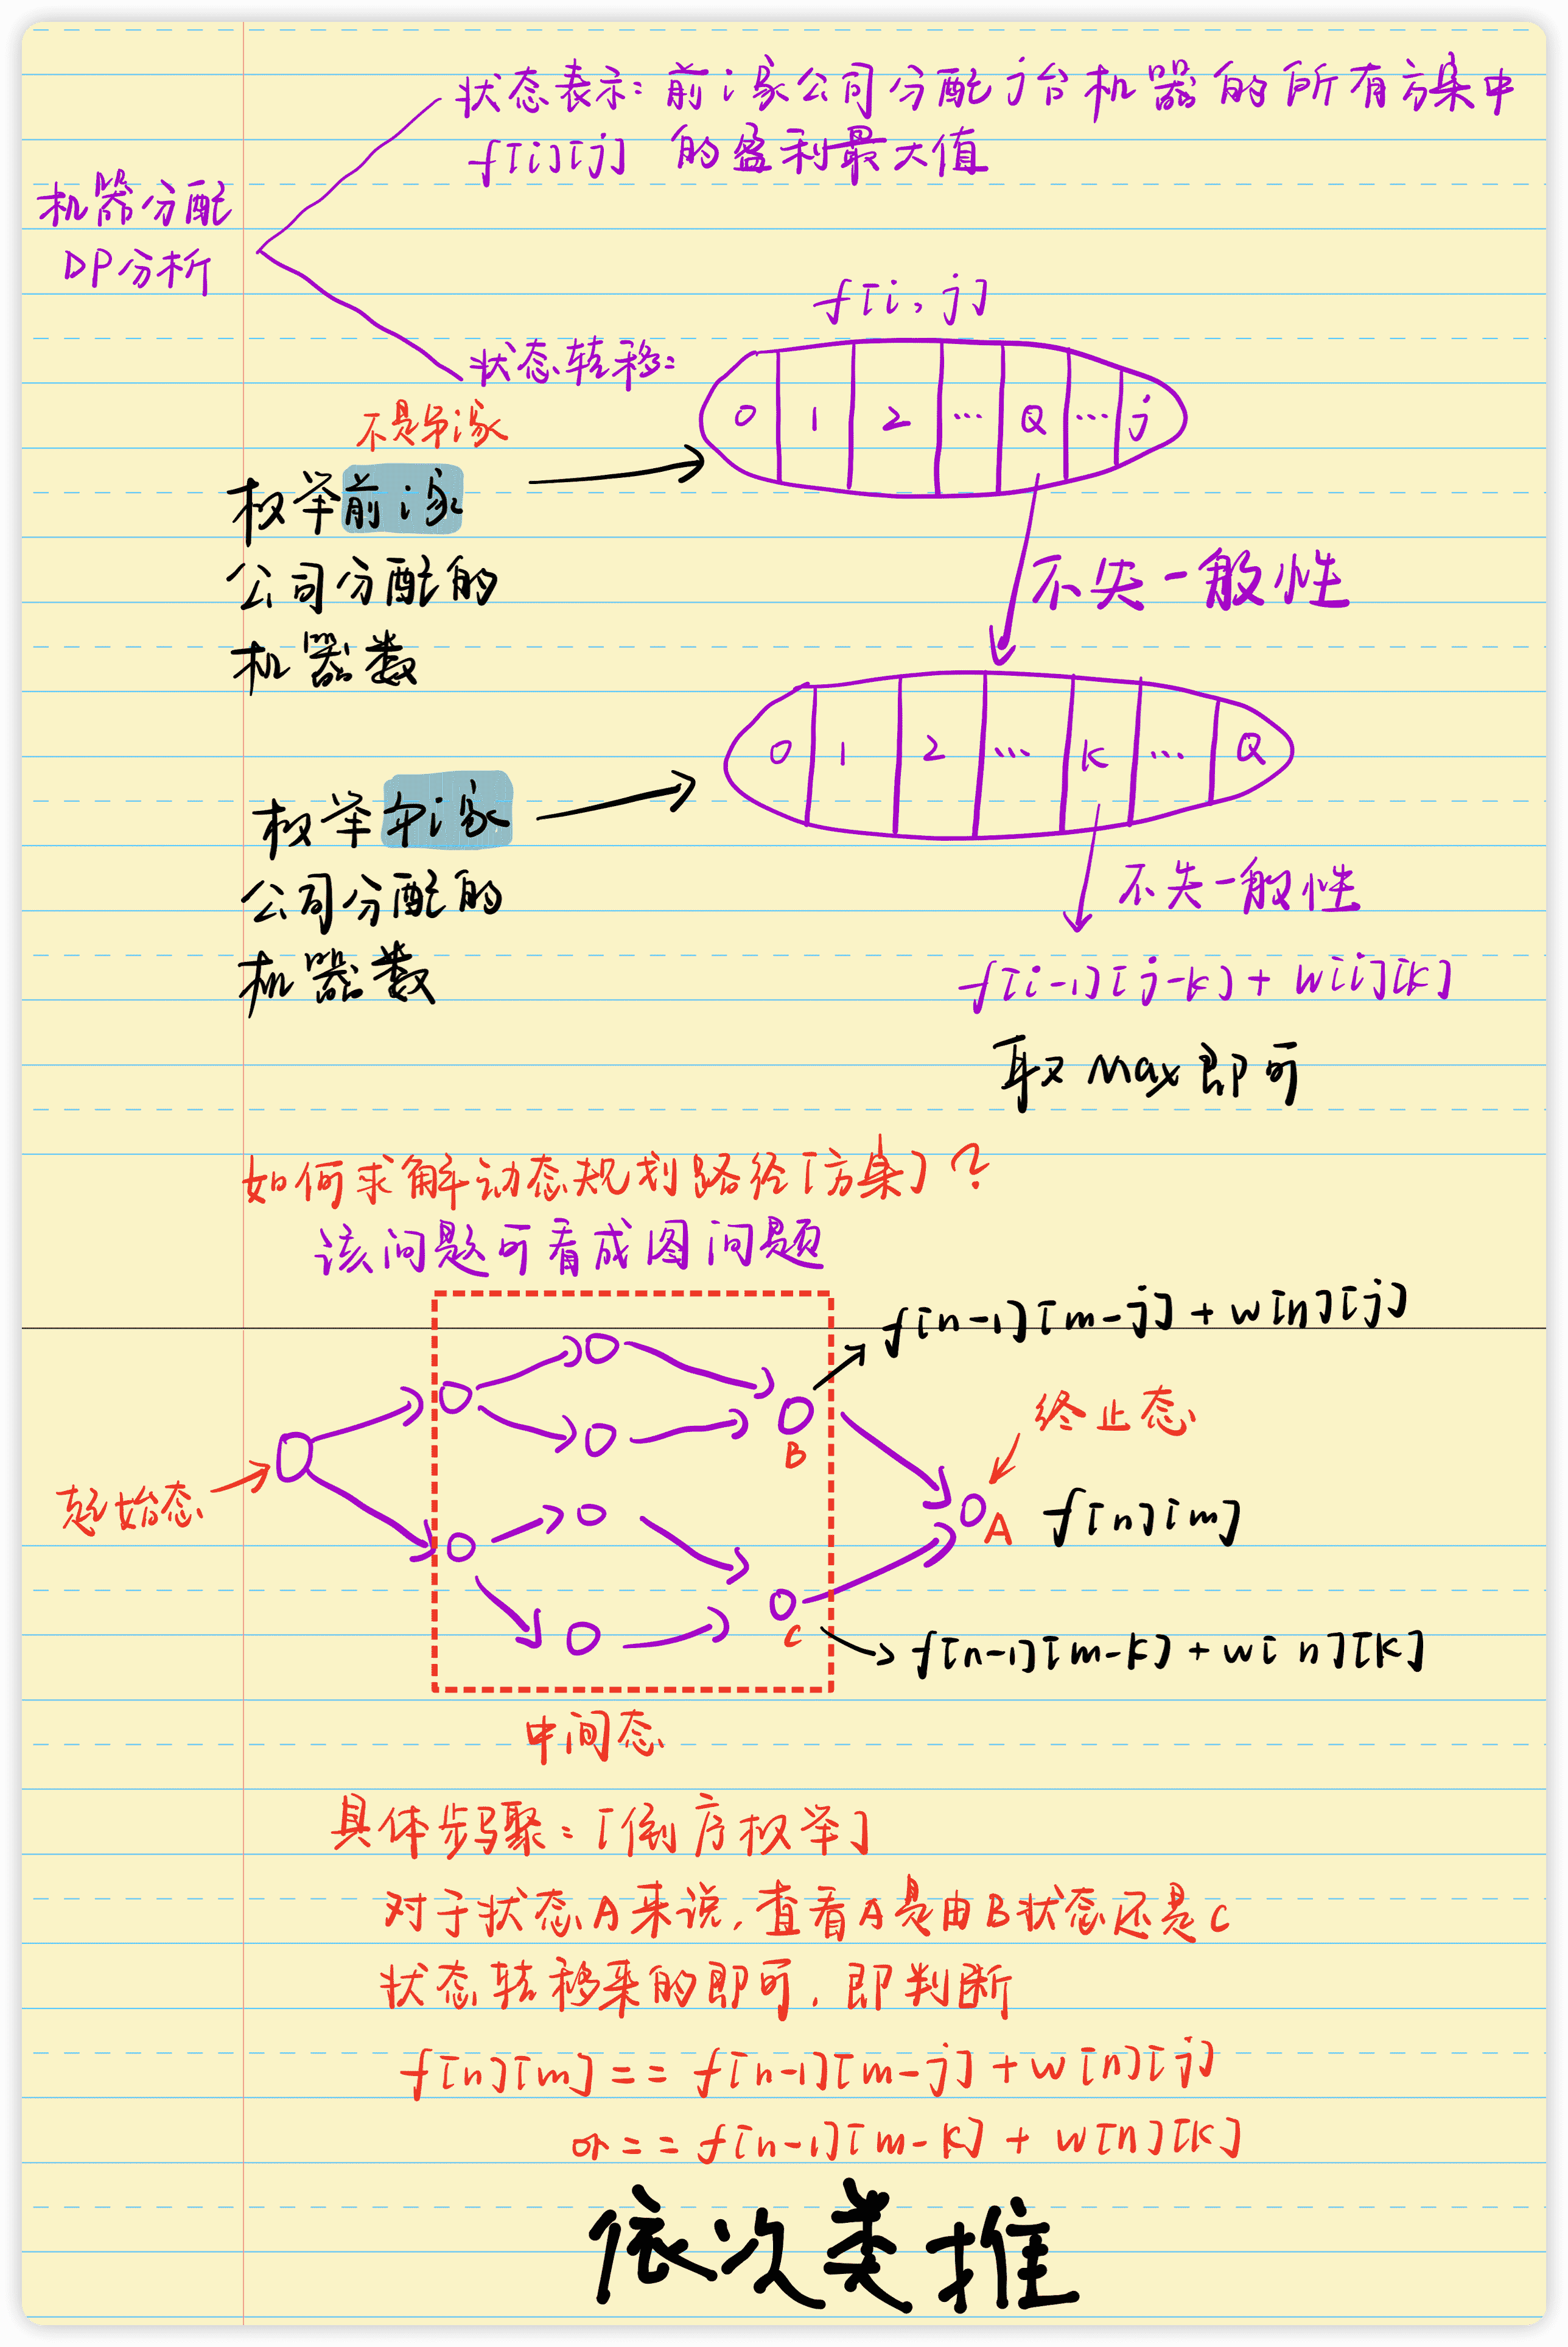 状态表示：前i家公司分配j台机器的所有方案中
f[i][j] 的盈利最大值
机器分配
DP分析
f[i, j]
状态转移：
0 1 2 … Q … j
不是第i家
枚举前i家
公司分配的
机器数
不失一般性
0 1 2 … k … Q
枚举第i家
公司分配的
机器数
不失一般性
f[i-1][j-k] + w[i][k]
取 max 即可
如何求解动态规划路径[方案]？
该问题可看成图问题
f[n-1][m-j] + w[n][j]
终止态
B
起始态
A f[n][m]
C
f[n-1][m-k] + w[n][k]
中间态
具体步骤：[倒序枚举]
对于状态A来说，查看A是由B状态还是C
状态转移来的即可，即判断
f[n][m] == f[n-1][m-j] + w[n][j]
or == f[n-1][m-k] + w[n][k]
依次类推